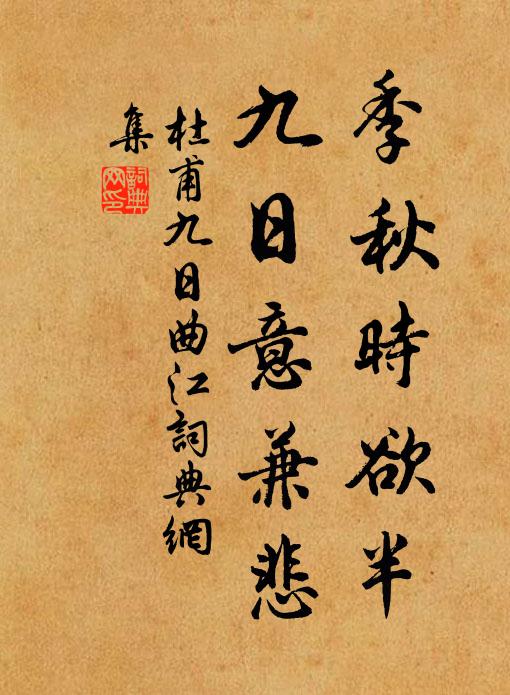 季秋時欲半
九日意兼悲
杜甫九日曲江詞典網
集
詞典
网印